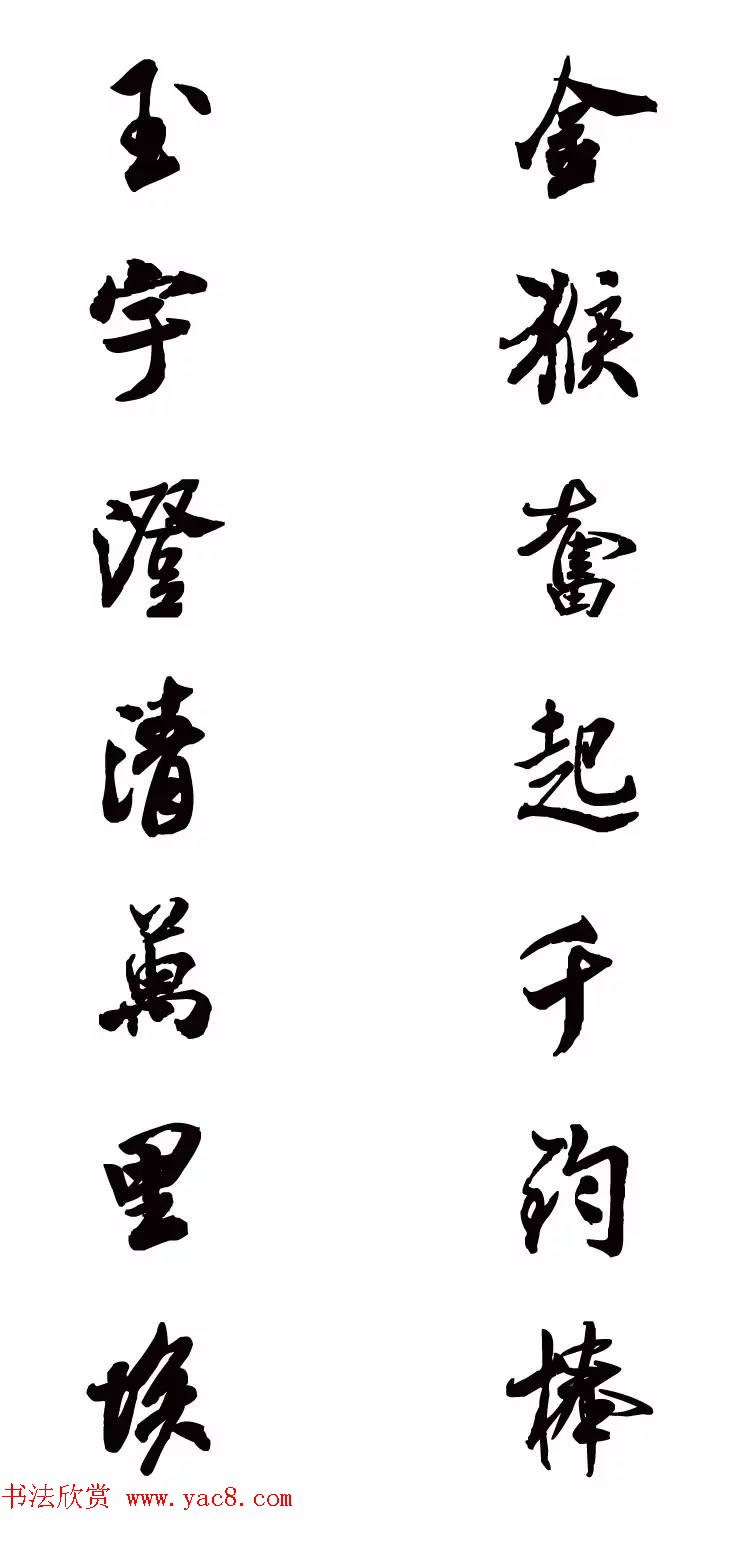 金猴奮起千鈞棒
玉宇澄清萬里埃
书法欣赏 www.yac8.com